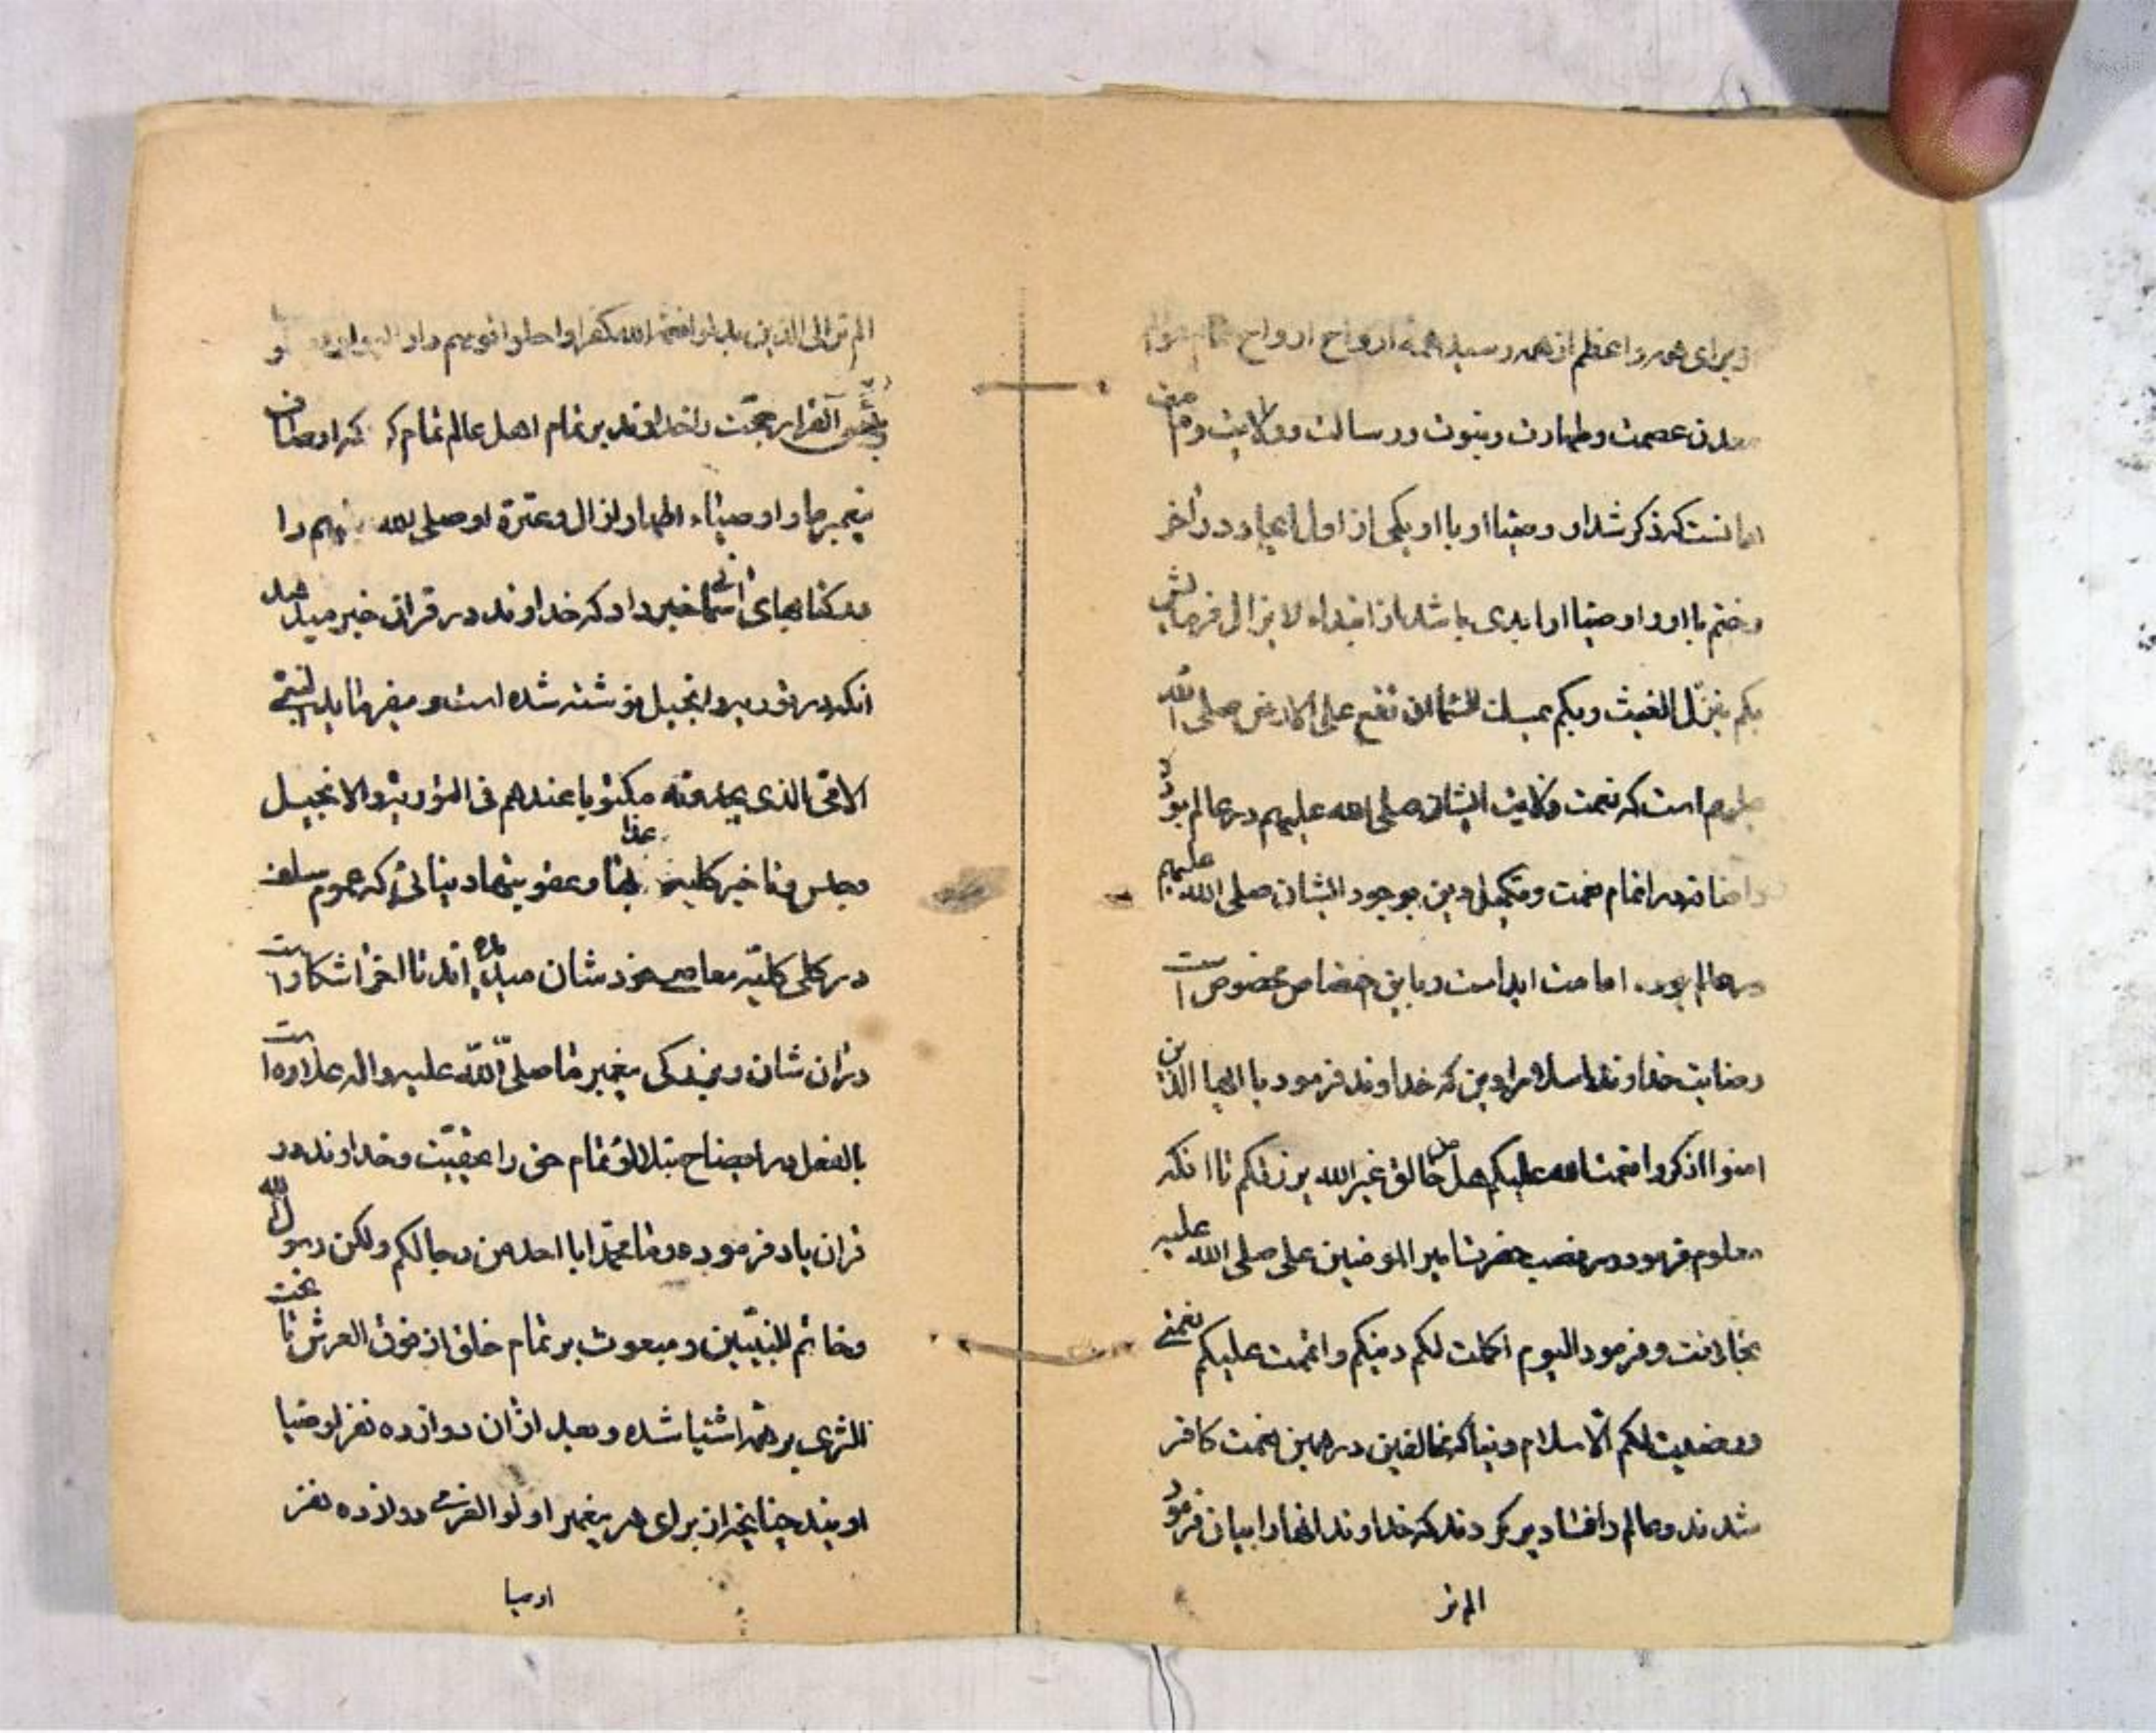 و برای همه و اعظم از همه وسیله همه ارواح ارواح
معدن عصمت و طهارت و نبوت و رسالت و ولایت و
امانست که ذکر شد او و وصیّا او با او یکی از اول ایجاد و در آخر
و ختم با او و اوصیّا او ابدی باشد از ابتداء لا یزال فرمایش
بکم ینزّل الغیث و بکم یمسك السّمآء ان تقع علی الارض صلی الله
معلوم است که نعمت ولایت ایشان صلی الله علیهم در عالم بود
اتمام نعمت و تکمیل دین بوجود ایشان صلی الله علیهم
در عالم بود. امامت ابدا است و باین اختصاص مخصوص است
رضایت خداوند اسلام را دین که خداوند فرمود یا ایها الذین
امنوا اذکروا نعمت الله علیکم هل من خالق غیر الله یرزقکم تا انکه
معلوم فرمود در نصب حضرت امیر المومنین علی صلی الله علیه
بخلافت و فرمود الیوم اکملت لکم دینکم و اتممت علیکم نعمتی
و رضیت لکم الاسلام دینا که مخالفین در همین نعمت کافر
شدند و عالم را فساد پر کردند که خداوند انها را بیان فرمود
الم تر
الم تر الی الذین بدلوا نعمة الله کفرا و احلوا قومهم دار البوار
و بئس القرار حجّت را خداوند بر تمام اهل عالم تمام کرد که اوصاف
پیغمبر ما و اوصیاء اطهار از ال و عترة او صلی الله علیهم را
در کتابهای آسمانی خبر داد که خداوند در قران خبر میدهد
انکه در توریه و انجیل نوشته شده است و میفرماید النبیّ
الامّی الذی یجدونه مکتوبا عندهم فی التوریة و الانجیل
عذابها و عقوبتهاد نیائی که عموم سلف
در کلی کلیّه معاصی خودشان مبتلا شده اند تا اخر اشکار است
در ان شان و بزرگی پیغمبر ما صلّی الله علیه و اله علاوه است
بالفعل در ایضاح تمام حق را بحقیّت و خداوند در
قران یاد فرموده و ما محمّد ابا احد من رجالکم ولکن رسول الله
و خاتم النبیّین و مبعوث بر تمام خلق از فوق العرش تا تحت
الثری بر همه اشیا شده و بعد از ان دوازده نفر اوصیا
اویند چنانچه از برای هر پیغمبر اولو العزمی دوازده نفر
اوصیا